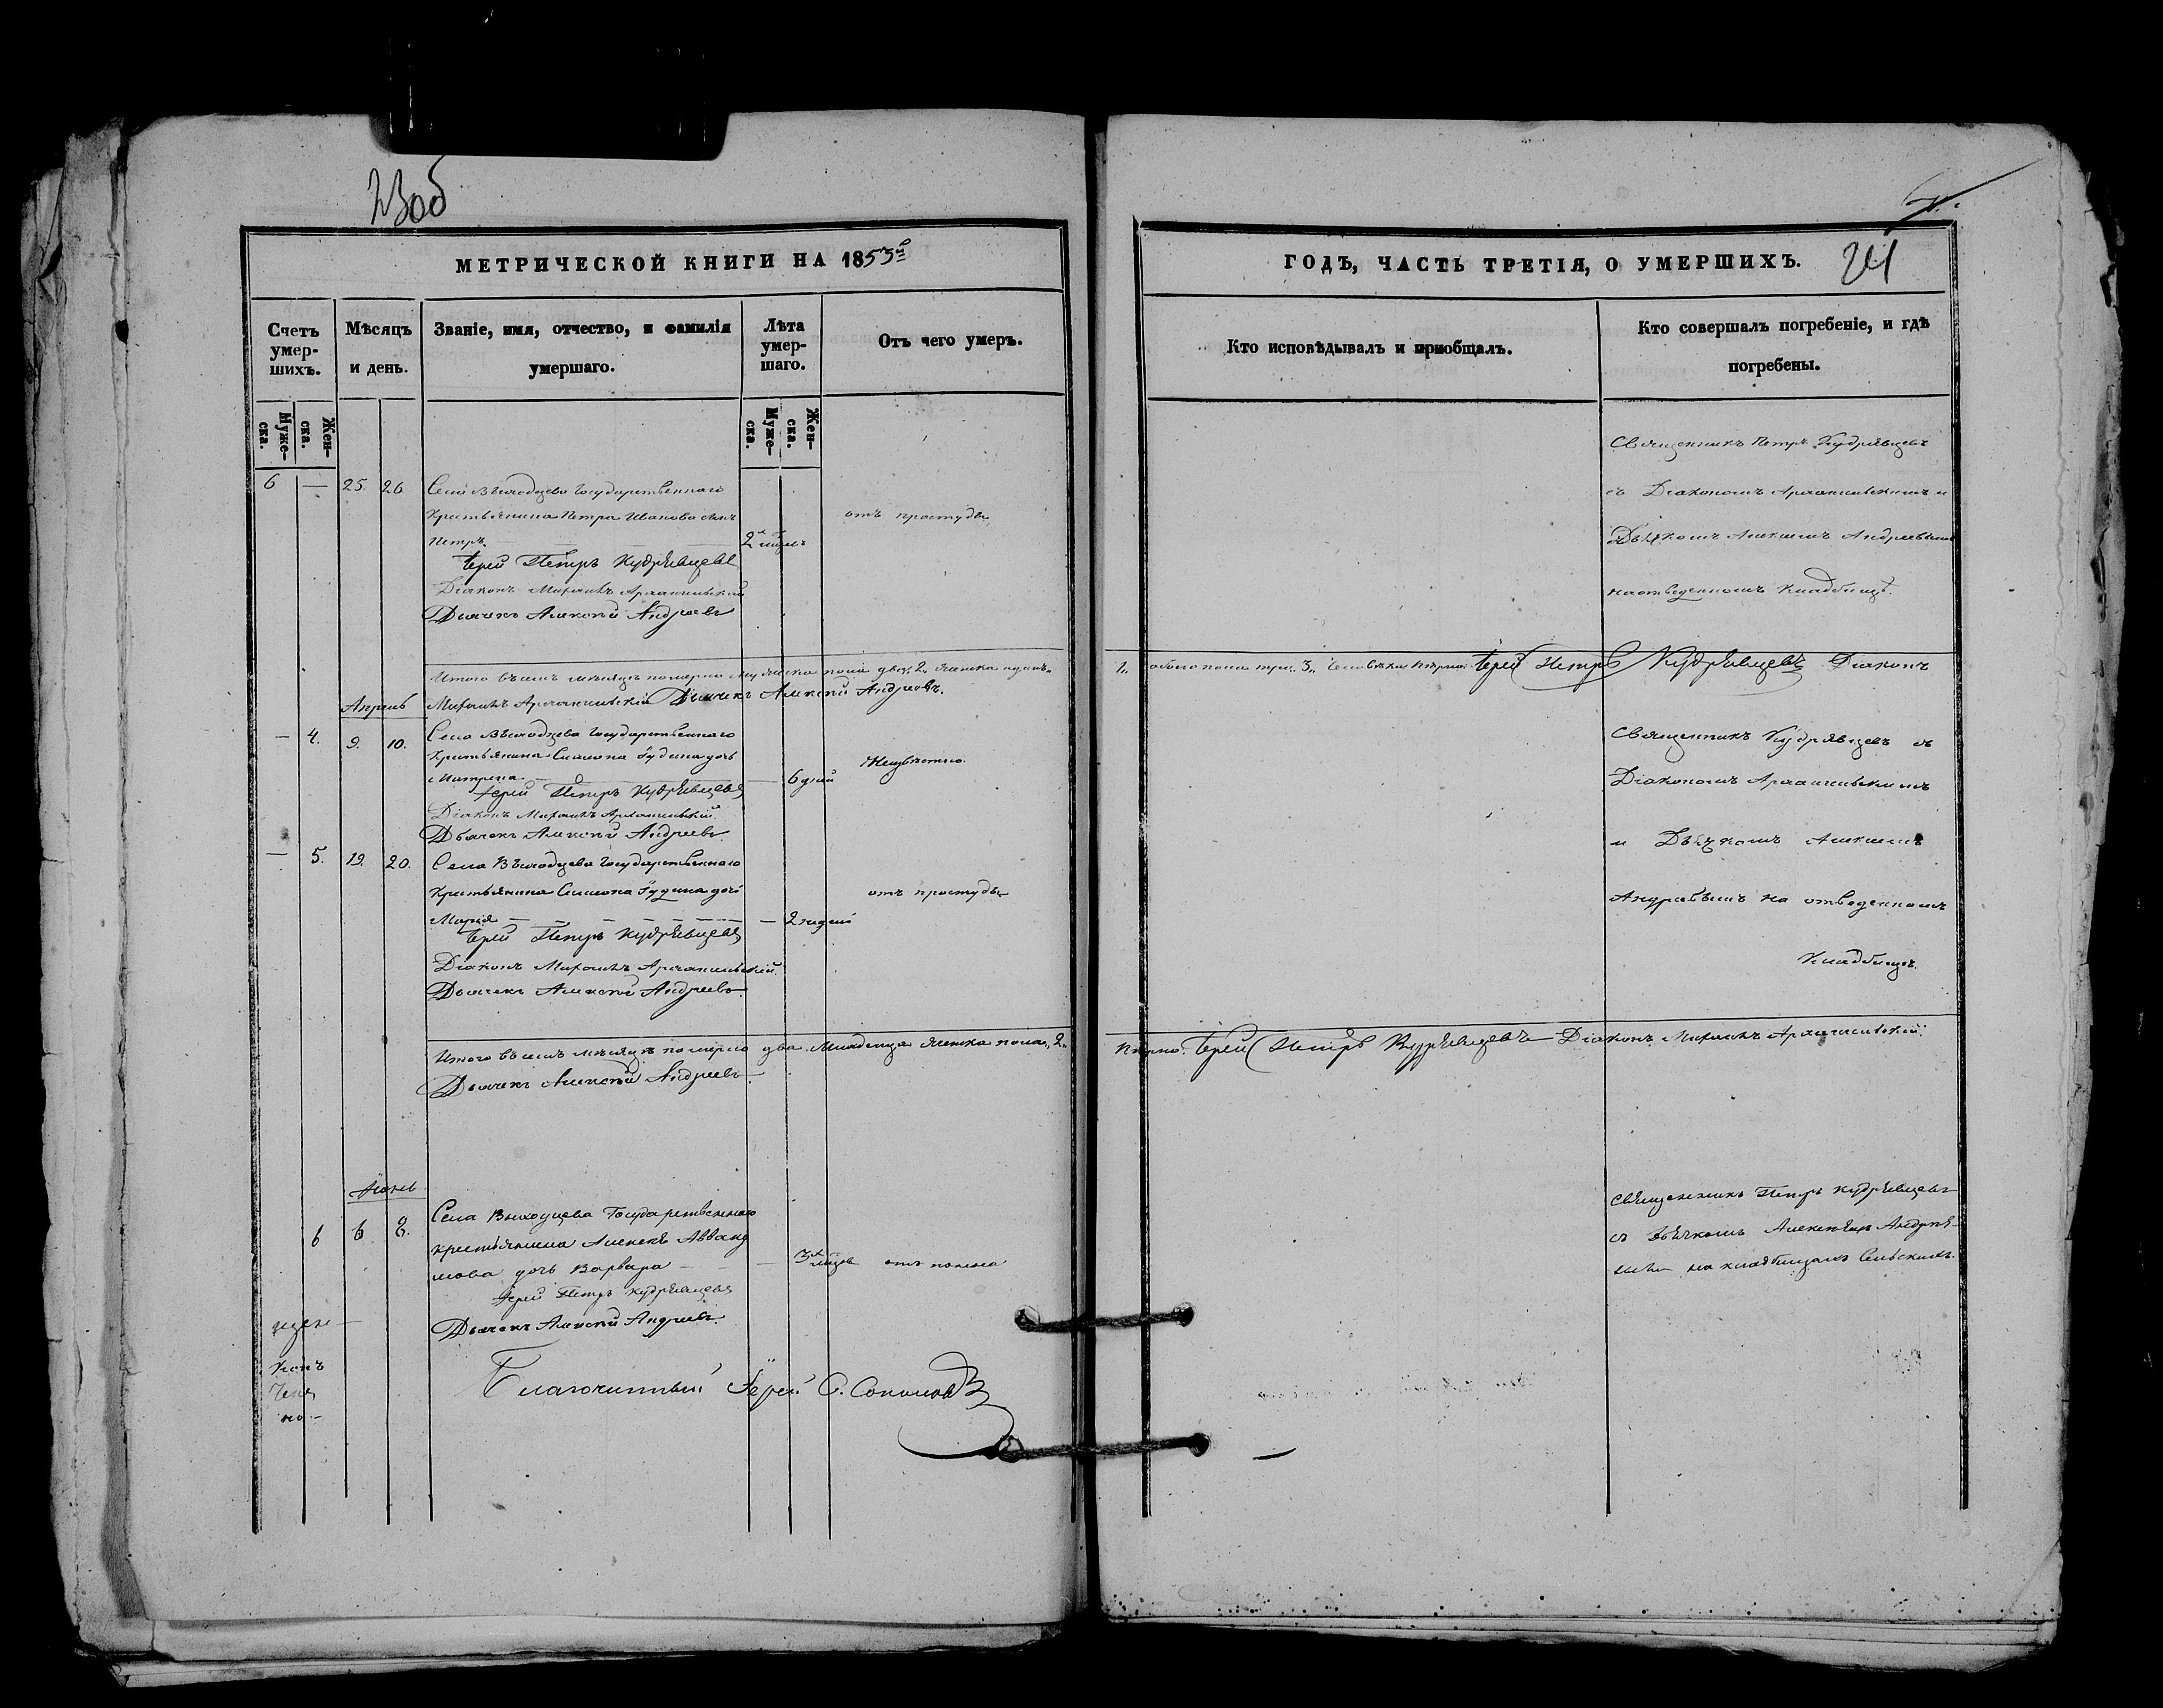 23об
МЕТРИЧЕСКОЙ КНИГИ НА 1853й
Счетъ умер-
шихъ.
Мѣсяцъ
и день.
Званіе, имя, отчество, и фамилія
умершаго.
Лѣта
умер-
шаго.
Отъ чего умеръ.
Муже-
ска.
Жен-
ска.
Муже-
ска.
Жен-
ска.
6 — 25. 26.
Села Выходцева Государственнаго
Крестьянина Петра Иванова сынъ
Петръ 2 отъ простуды
Іерей Петръ Кудрявцевъ
Діаконъ Михаилъ Архангельскій
Дьячекъ Алексѣй Андреевъ
Итого въ семъ мѣсяцѣ померло мужеска пола два „2„ женска одинъ
Михаилъ Архангельскій Дьячекъ Алексѣй Андреевъ.
Апрель
— 4. 9. 10.
Села Выходцева Государственнаго
Крестьянина Симеона Гудина дочь
Матрена — 6 дней Неизвѣстно.
Іерей Петръ Кудрявцевъ
Діаконъ Михаилъ Архангельскій.
Дьячекъ Алексѣй Андреевъ.
— 5. 19. 20.
Села Выходцева Государственнаго
Крестьянина Симеона Гудина дочь
Марія — 2 недель отъ простуды
Іерей Петръ Кудрявцевъ
Діаконъ Михаилъ Архангельскій.
Дьячекъ Алексѣй Андреевъ.
Итого въ семъ мѣсяцѣ померло два младенца женска пола „2„
Дьячекъ Алексѣй Андреевъ.
Іюнь
6 6 8.
Села Выходцева Государственнаго
крестьянина Алексѣя
дочь Варвара — 3х отъ поноса
Іерей Петръ Кудрявцевъ
Дьячекъ Алексѣй Андреевъ.
Благочинный Іерей С. Соколовъ
ГОДЪ, ЧАСТЬ ТРЕТІЯ, О УМЕРШИХЪ.
24
Кто исповѣдывалъ и пріобщалъ.
Кто совершалъ погребеніе, и гдѣ
погребены.
Священникъ Петръ Кудрявцевъ
съ Діакономъ Архангельскимъ и
Дьячкомъ Алексѣемъ Андреевымъ
на отведенномъ кладбищѣ.
1„ обоего пола три „3„ Человѣка Іерей Петръ Кудрявцевъ Діаконъ
Священникъ Кудрявцевъ съ
Діакономъ Архангельскимъ
и Дьячкомъ Алексѣемъ
Андреевымъ на отведенномъ
Кладбищѣ.
Іерей Петръ Кудрявцевъ Діаконъ Михаилъ Архангельскій
Священникъ Петръ Кудрявцевъ
съ дьячкомъ Алексѣемъ Андрее-
вымъ на кладбищахъ Сельскихъ.